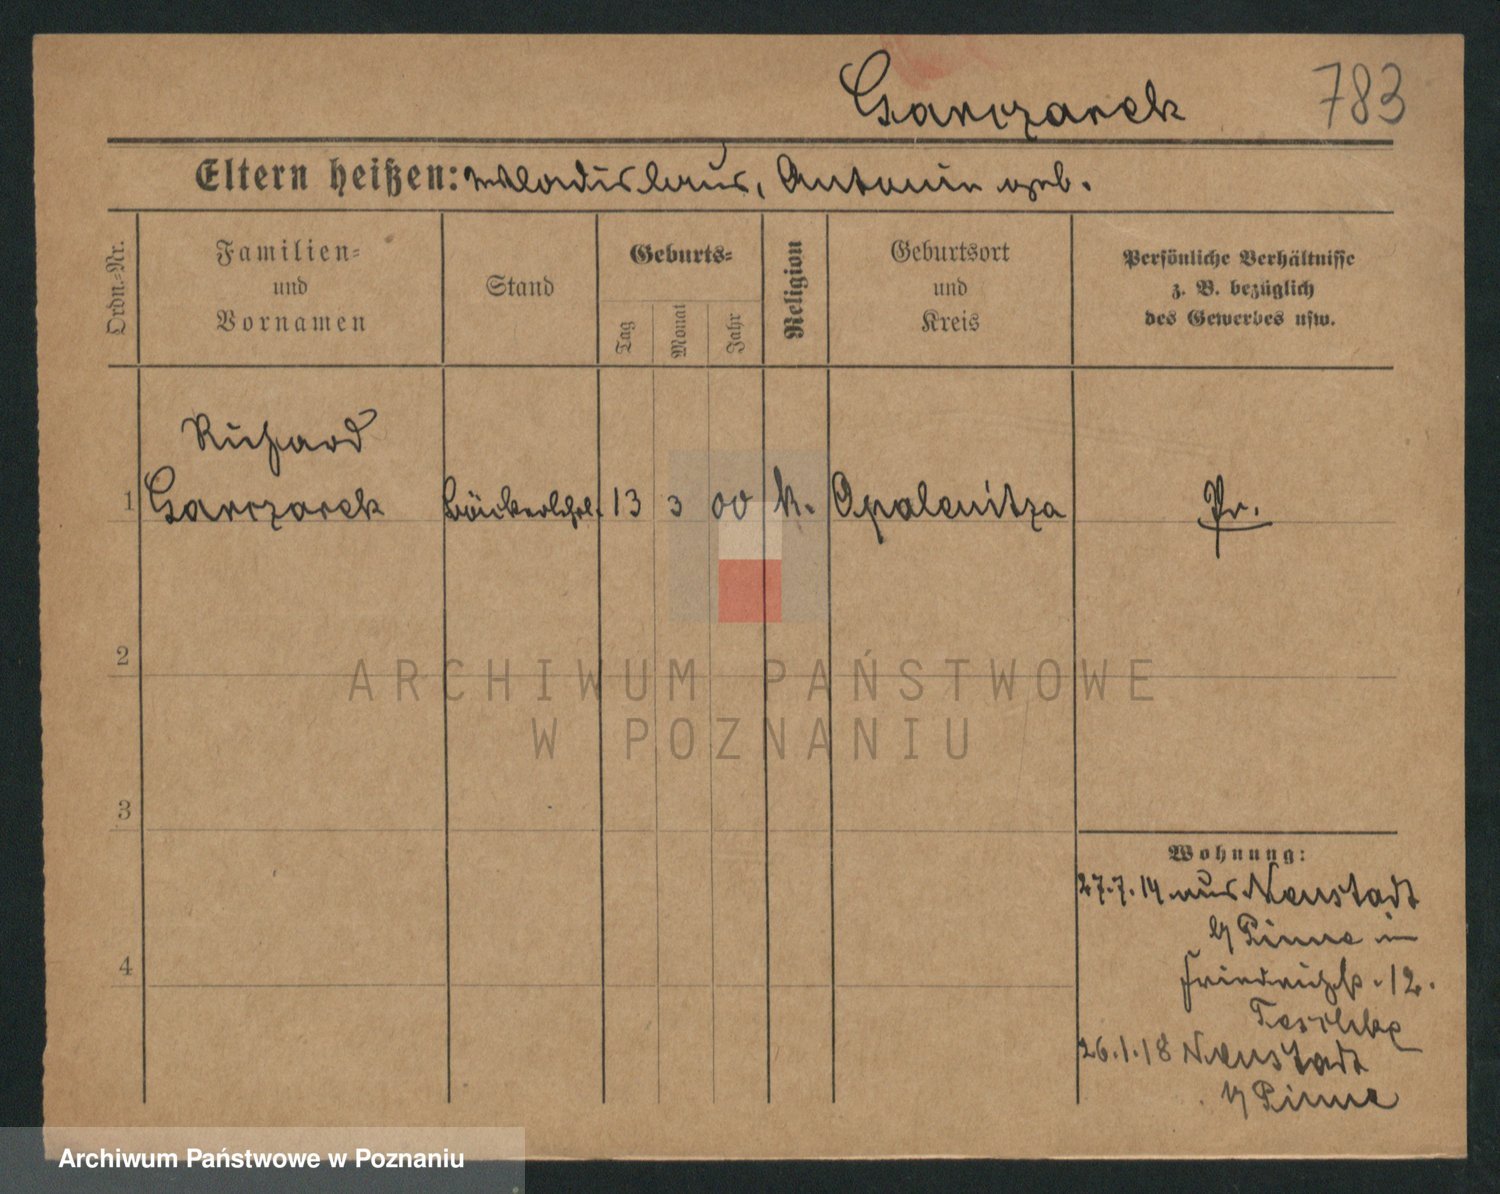 Garczarek 783
Eltern heißen: Wladislaus, Antonie geb.
Ordn.-Nr.
Familien-
und
Vornamen
Stand
Geburts-
Tag
Monat
Jahr
Religion
Geburtsort
und
Kreis
Persönliche Verhältnisse
z. B. bezüglich
des Gewerbes usw.
Richard
1 Garczarek Bäckerlehrl. 13 3 00 k. Opalenitza Pr.
2
3
4
Wohnung:
27.7.14 aus Neustadt
b/ Pinne in
Friedrichstr. 12.
26.1.18 Neustadt
b/ Pinne
ARCHIWUM PAŃSTWOWE
W POZNANIU
Archiwum Państwowe w Poznaniu